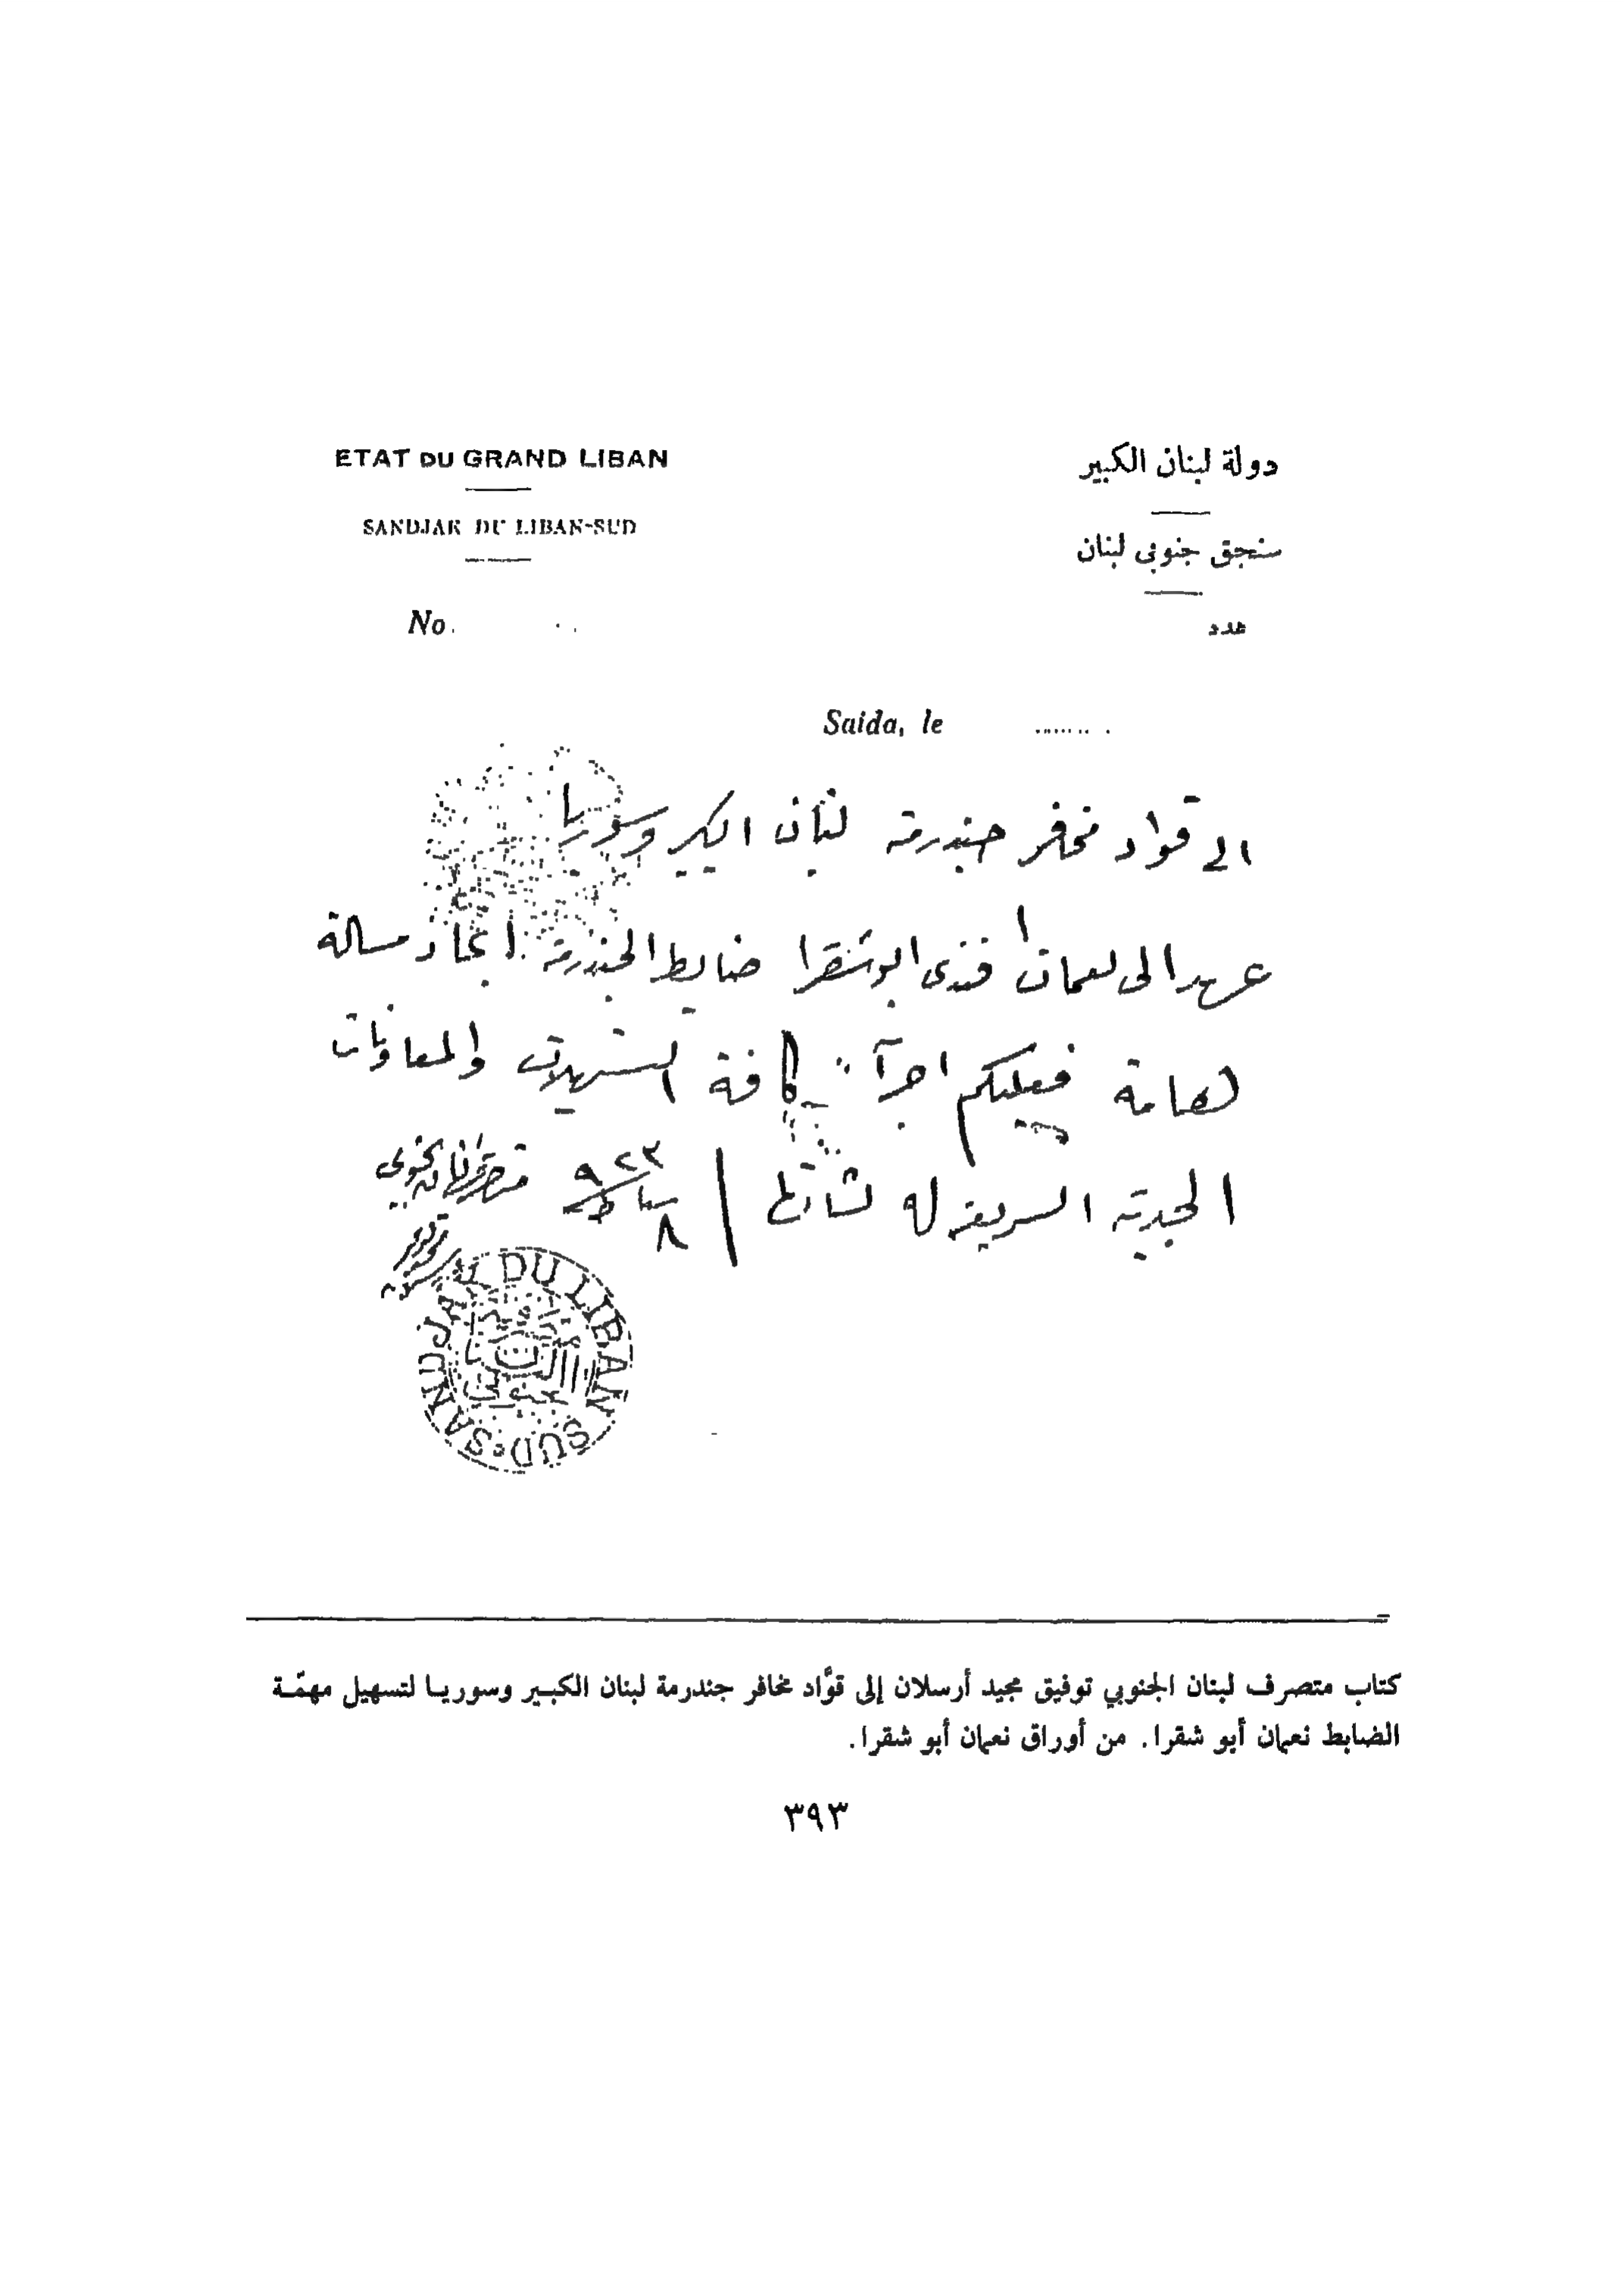 ETAT DU GRAND LIBAN
دولة لبنان الكبير
SANDJAK DU LIBAN-SUD
سنجق جنوبي لبنان
No.
عدد
Saida, le
الى قواد مخافر جندرمة لبنان الكبير وسوريا
عهد الى نعمان افندي ابو شقرا ضابط الجندرمة مسالة
هامة فعليكم اجرآ كافة التسهيلات والمعاونات
الجدية السريعة له
٨ شباط ٩٢٣
SANDJAK DU LIBAN SUD
كتاب متصرف لبنان الجنوبي توفيق مجيد أرسلان إلى قوَّاد مخافر جندرمة لبنان الكبير وسوريا لتسهيل مهمّة
الضابط نعمان أبو شقرا. من أوراق نعمان أبو شقرا.
٣٩٣